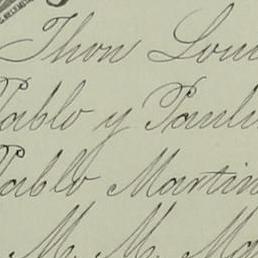 Thon Loui
Pablo y Paulin
Pablo Martin
M. M. Ma